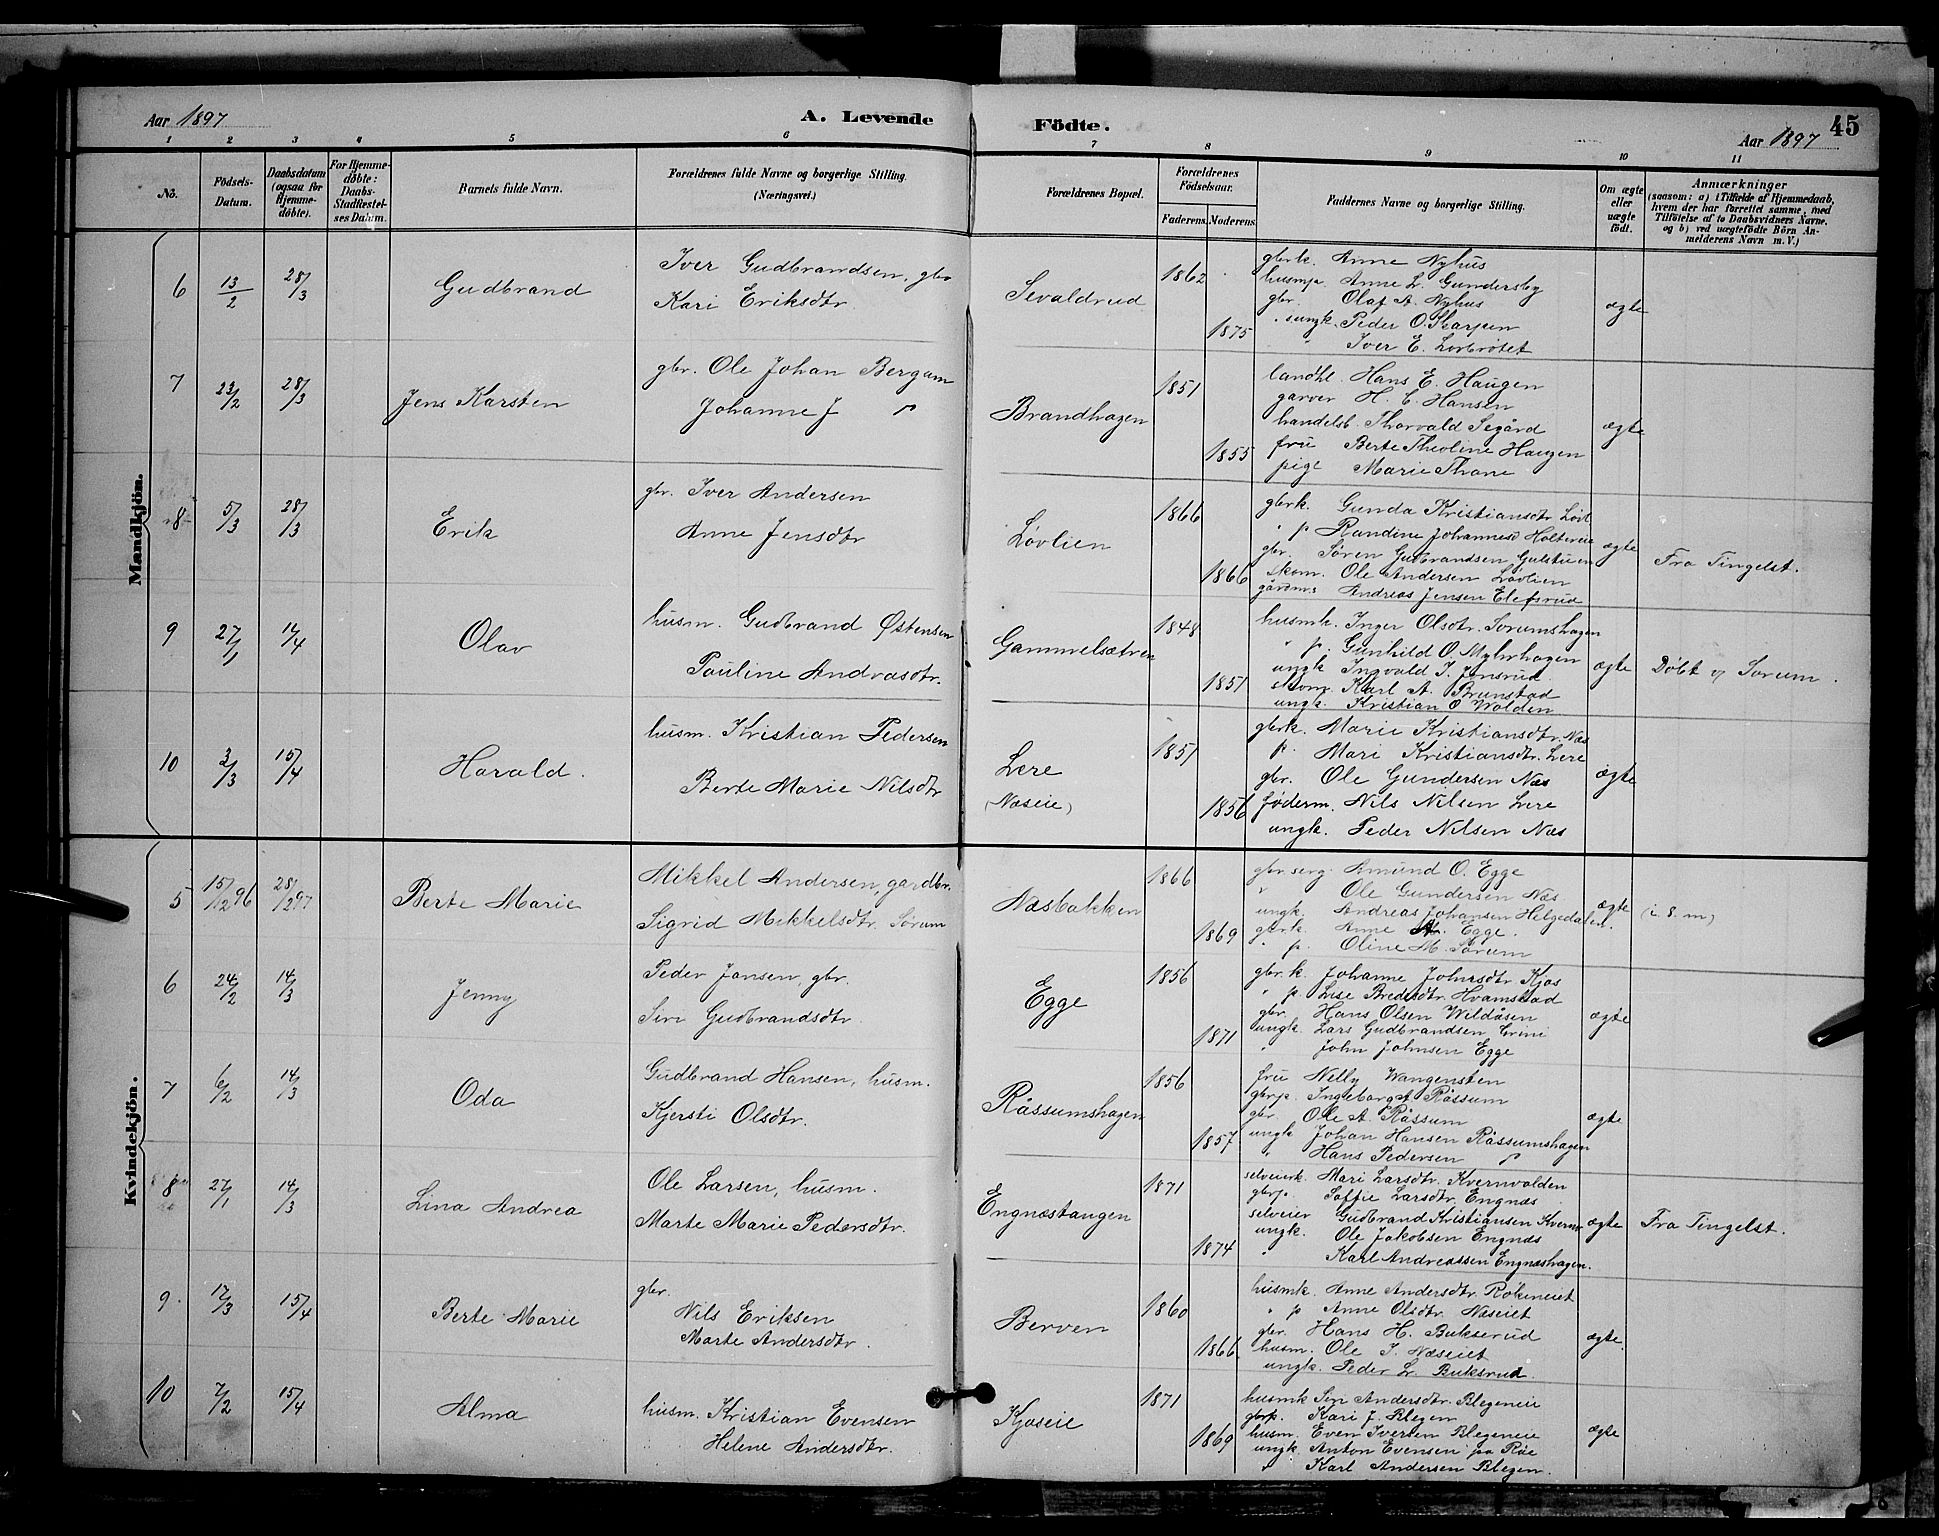 Aar 1897
A. Levende
Födte.
Aar 1897
45
1 2 3 4 5 6 7 8 9 10 11
No.
Födsels-
Datum.
Daabsdatum
(ogsaa for
Hjemme-
döbte).
For Hjemme-
döbte:
Daabs-
Stadfæstel-
ses Datum.
Barnets fulde Navn.
Forældrenes fulde Navne og borgerlige Stilling.
(Næringsvei.)
Forældrenes Bopæl.
Forældrenes
Födselsaar.
Faderens. Moderens.
Faddernes Navne og borgerlige Stilling.
Om ægte
eller
uægte
födt.
Anmærkninger
(saasom: a) i Tilfælde af Hjemmedaab,
hvem der har forrettet samme, med
Tilföielse af to Daabsvidners Navne,
og b) ved uægtefödte Börn An-
melderens Navn m. V.)
Mandkjön.
6 13/2 28/3 Gudbrand
Iver Gudbrandsen, gbr
Kari Eriksdtr.
Sevaldrud
1862
1875
gbrk. Anne Nyhus
husmp. Anne L. Gundersby
gbr. Olaf A. Nyhus
" ungk. Peder O. Skarpen
" Iver E. Lovbrøtet
ægte
7 23/2 28/3 Jens Karsten
gbr. Ole Johan Bergum
Johanne J "
Brandhagen
1851
1855
landhl. Hans E. Haugen
garver H. C. Hansen
handelsb. Thorvald Segård
fru Berte Theoline Haugen
pige Marie Thone
ægte
8 5/3 28/3 Erik
gbr. Iver Andersen
Anne Jensdtr
Løvlien
1866
1866
gbrk. Gunda Kristiansdtr Løvl
" p Randine Johannesd Holtereie
gbr. Søren Gudbrandsen Gulstuen
skom. Ole Andersen Løvlien
gårdms Andreas Jensen Elefsrud
ægte
Fra Tingelst.
9 27/1 14/4 Olav
husm. Gudbrand Østensen
Pauline Andreasdtr.
Gammelsætren
1848
1851
husmk. Inger Olsdtr. Sorumshagen
" p. Gunhild O. Myhrhagen
ungk Ingvald I. Jonsrud
skom. Karl A. Brunstad
ungk. Kristian O Wolden
ægte
Döbt v Sorum.
10 3/3 15/4 Harald.
husm. Kristian Pedersen
Berte Marie Nilsdtr
Lere
(Næseie)
1857
1856
gbrk. Marie Kristiansdtr. Næs
p. Mari Kristiansdtr. Lere
gbr. Ole Gundersen Næs
föderm. Nils Nilsen Lere
ungk. Peder Nilsen Næs
ægte
Kvindekjön.
5 15/12 96 28/2 97 Berte Marie
Mikkel Andersen, gardbr.
Sigrid Mikkelsdtr. Sörum
Næsbakken
1866
1869
gbr. serg. Amund O. Egge
" Ole Gundersen Næs
ungk. Andreas Johansen Helgedalen.
gbrk. Anne A. Egge.
" p. Oline M. Sorum
ægte
(i. S. m)
6 24/2 14/3 Jenny
Peder Jansen, gbr.
Siri Gudbrandsdtr.
Egge
1856
1871
gbr. k. Johanne Johnsdtr Kjos
" p. Lise Bredesdtr. Hvamstad
gbr. Hans Olsen Wildåsen
ungk Lars Gudbrandsen
" John Johnsen Egge
ægte
7 6/2 14/3 Oda
Gudbrand Hansen, husm.
Kjersti Olsdtr.
Råssumshagen
1856
1857
fru Nelly Wangensten
gbrp. Ingeborg A Råssum
gbr. Ole A Råssum
ungk Johan Hansen Råssumshagen
" Hans Pedersen "
ægte
8 27/1 14/3 Lina Andrea
Ole Larsen, husm.
Marte Marie Pedersdtr.
Engnæstangen
1871
1874
selveierk. Mari Larsdtr. Kvernvolden
gbrp. Soffie Larsdtr. Engnæs
selveier Gudbrand Kristiansen Kvernv
ungk. Ole Jakobsen Engnæs
" Karl Andreassen Engnæshagen.
ægte
Fra Tingelst.
9. 17/3 15/4 Berte Marie
gbr.
Nils Eriksen
Marte Andersdtr.
Berven
1860
1866.
husmk. Anne Andersdtr. Rökeneiet
" p Anne Olsdtr. Næseiet
gbr. Hans H. Bukserud
husm. Ole I. Næseiet
ungk. Peder L. Buksrud.
ægte
10 7/2 15/4 Alma
husm. Kristian Evensen
Helene Andersdtr.
Kjoseie
1871
1869
husmk Siri Andersdtr. Blegeneie
gbrp. Kari J. Blegen
husm. Even Iversen Blegeneie
ungk. Anton Evensen på Röe
" Karl Andersen Blegen.
ægte